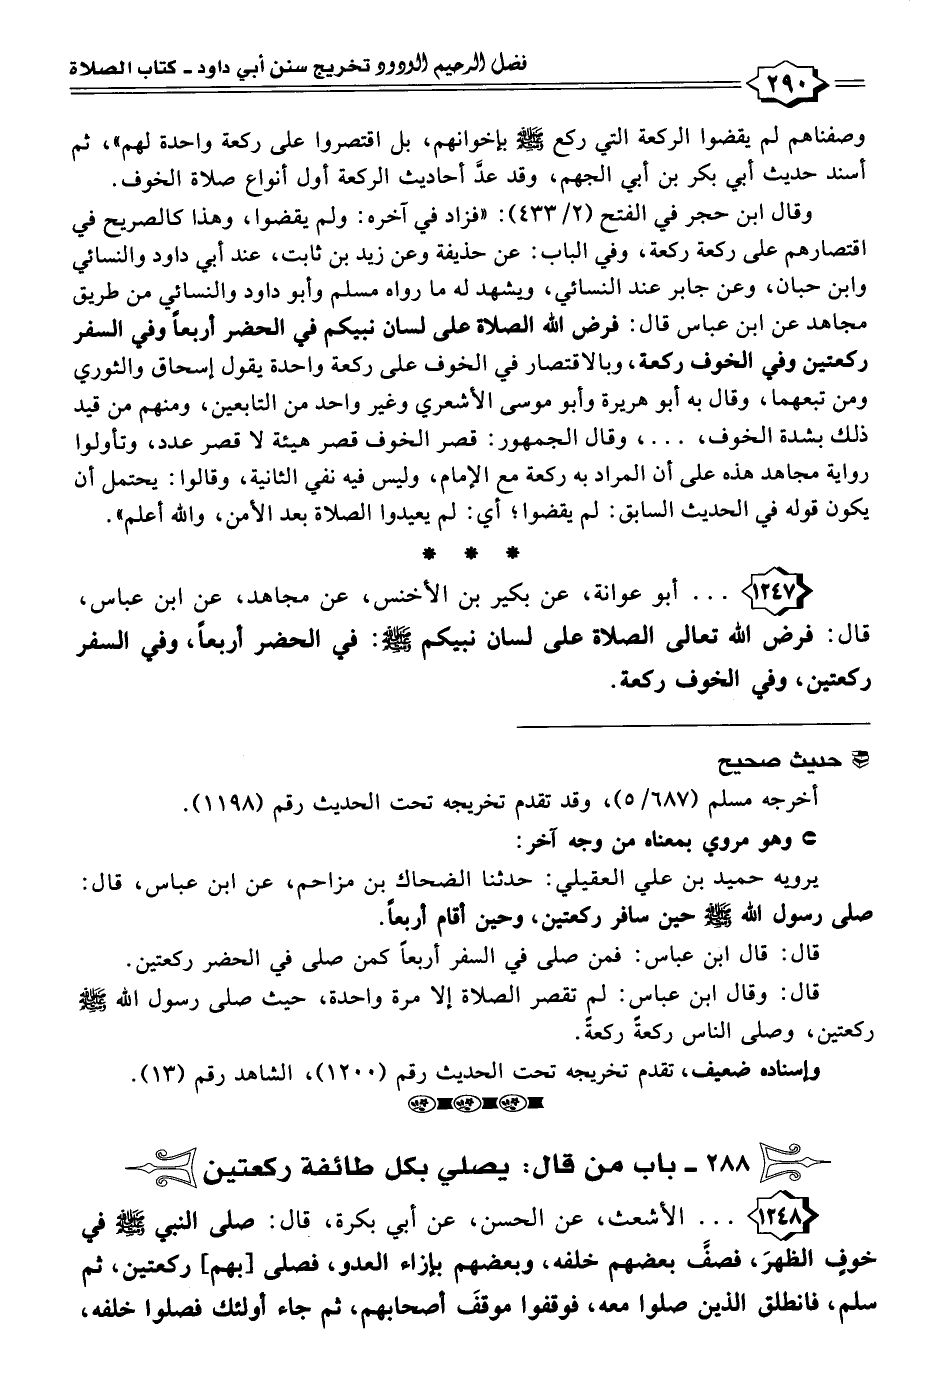 فضل الرحيم الودود تخريج سنن أبي داود - كتاب الصلاة
٢٩٠
وصفناهم لم يقضوا الركعة التي ركع ﷺ بإخوانهم، بل اقتصروا على ركعة واحدة لهم»، ثم
أسند حديث أبي بكر بن أبي الجهم، وقد عدَّ أحاديث الركعة أول أنواع صلاة الخوف.
وقال ابن حجر في الفتح (٢/ ٤٣٣): «فزاد في آخره: ولم يقضوا، وهذا كالصريح في
اقتصارهم على ركعة ركعة، وفي الباب: عن حذيفة وعن زيد بن ثابت، عند أبي داود والنسائي
وابن حبان، وعن جابر عند النسائي، ويشهد له ما رواه مسلم وأبو داود والنسائي من طريق
مجاهد عن ابن عباس قال: فرض الله الصلاة على لسان نبيكم في الحضر أربعاً وفي السفر
ركعتين وفي الخوف ركعة، وبالاقتصار في الخوف على ركعة واحدة يقول إسحاق والثوري
ومن تبعهما، وقال به أبو هريرة وأبو موسى الأشعري وغير واحد من التابعين، ومنهم من قيد
ذلك بشدة الخوف، ...، وقال الجمهور: قصر الخوف قصر هيئة لا قصر عدد، وتأولوا
رواية مجاهد هذه على أن المراد به ركعة مع الإمام، وليس فيه نفي الثانية، وقالوا: يحتمل أن
يكون قوله في الحديث السابق: لم يقضوا؛ أي: لم يعيدوا الصلاة بعد الأمن، والله أعلم».
* * *
١٢٤٧ ... أبو عوانة، عن بكير بن الأخنس، عن مجاهد، عن ابن عباس،
قال: فرض الله تعالى الصلاة على لسان نبيكم ﷺ: في الحضر أربعاً، وفي السفر
ركعتين، وفي الخوف ركعة.
حديث صحيح
أخرجه مسلم (٦٨٧/ ٥)، وقد تقدم تخريجه تحت الحديث رقم (١١٩٨).
وهو مروي بمعناه من وجه آخر:
يرويه حميد بن علي العقيلي: حدثنا الضحاك بن مزاحم، عن ابن عباس، قال:
صلى رسول الله ﷺ حين سافر ركعتين، وحين أقام أربعاً.
قال: قال ابن عباس: فمن صلى في السفر أربعاً كمن صلى في الحضر ركعتين.
قال: وقال ابن عباس: لم تقصر الصلاة إلا مرة واحدة، حيث صلى رسول الله ﷺ
ركعتين، وصلى الناس ركعةً ركعةً.
وإسناده ضعيف، تقدم تخريجه تحت الحديث رقم (١٢٠٠)، الشاهد رقم (١٣).
٢٨٨ - باب من قال: يصلي بكل طائفة ركعتين
١٢٤٨ ... الأشعث، عن الحسن، عن أبي بكرة، قال: صلى النبي ﷺ في
خوفٍ الظهرَ، فصفَّ بعضهم خلفه، وبعضهم بإزاء العدو، فصلى [بهم] ركعتين، ثم
سلم، فانطلق الذين صلوا معه، فوقفوا موقفَ أصحابهم، ثم جاء أولئك فصلوا خلفه،